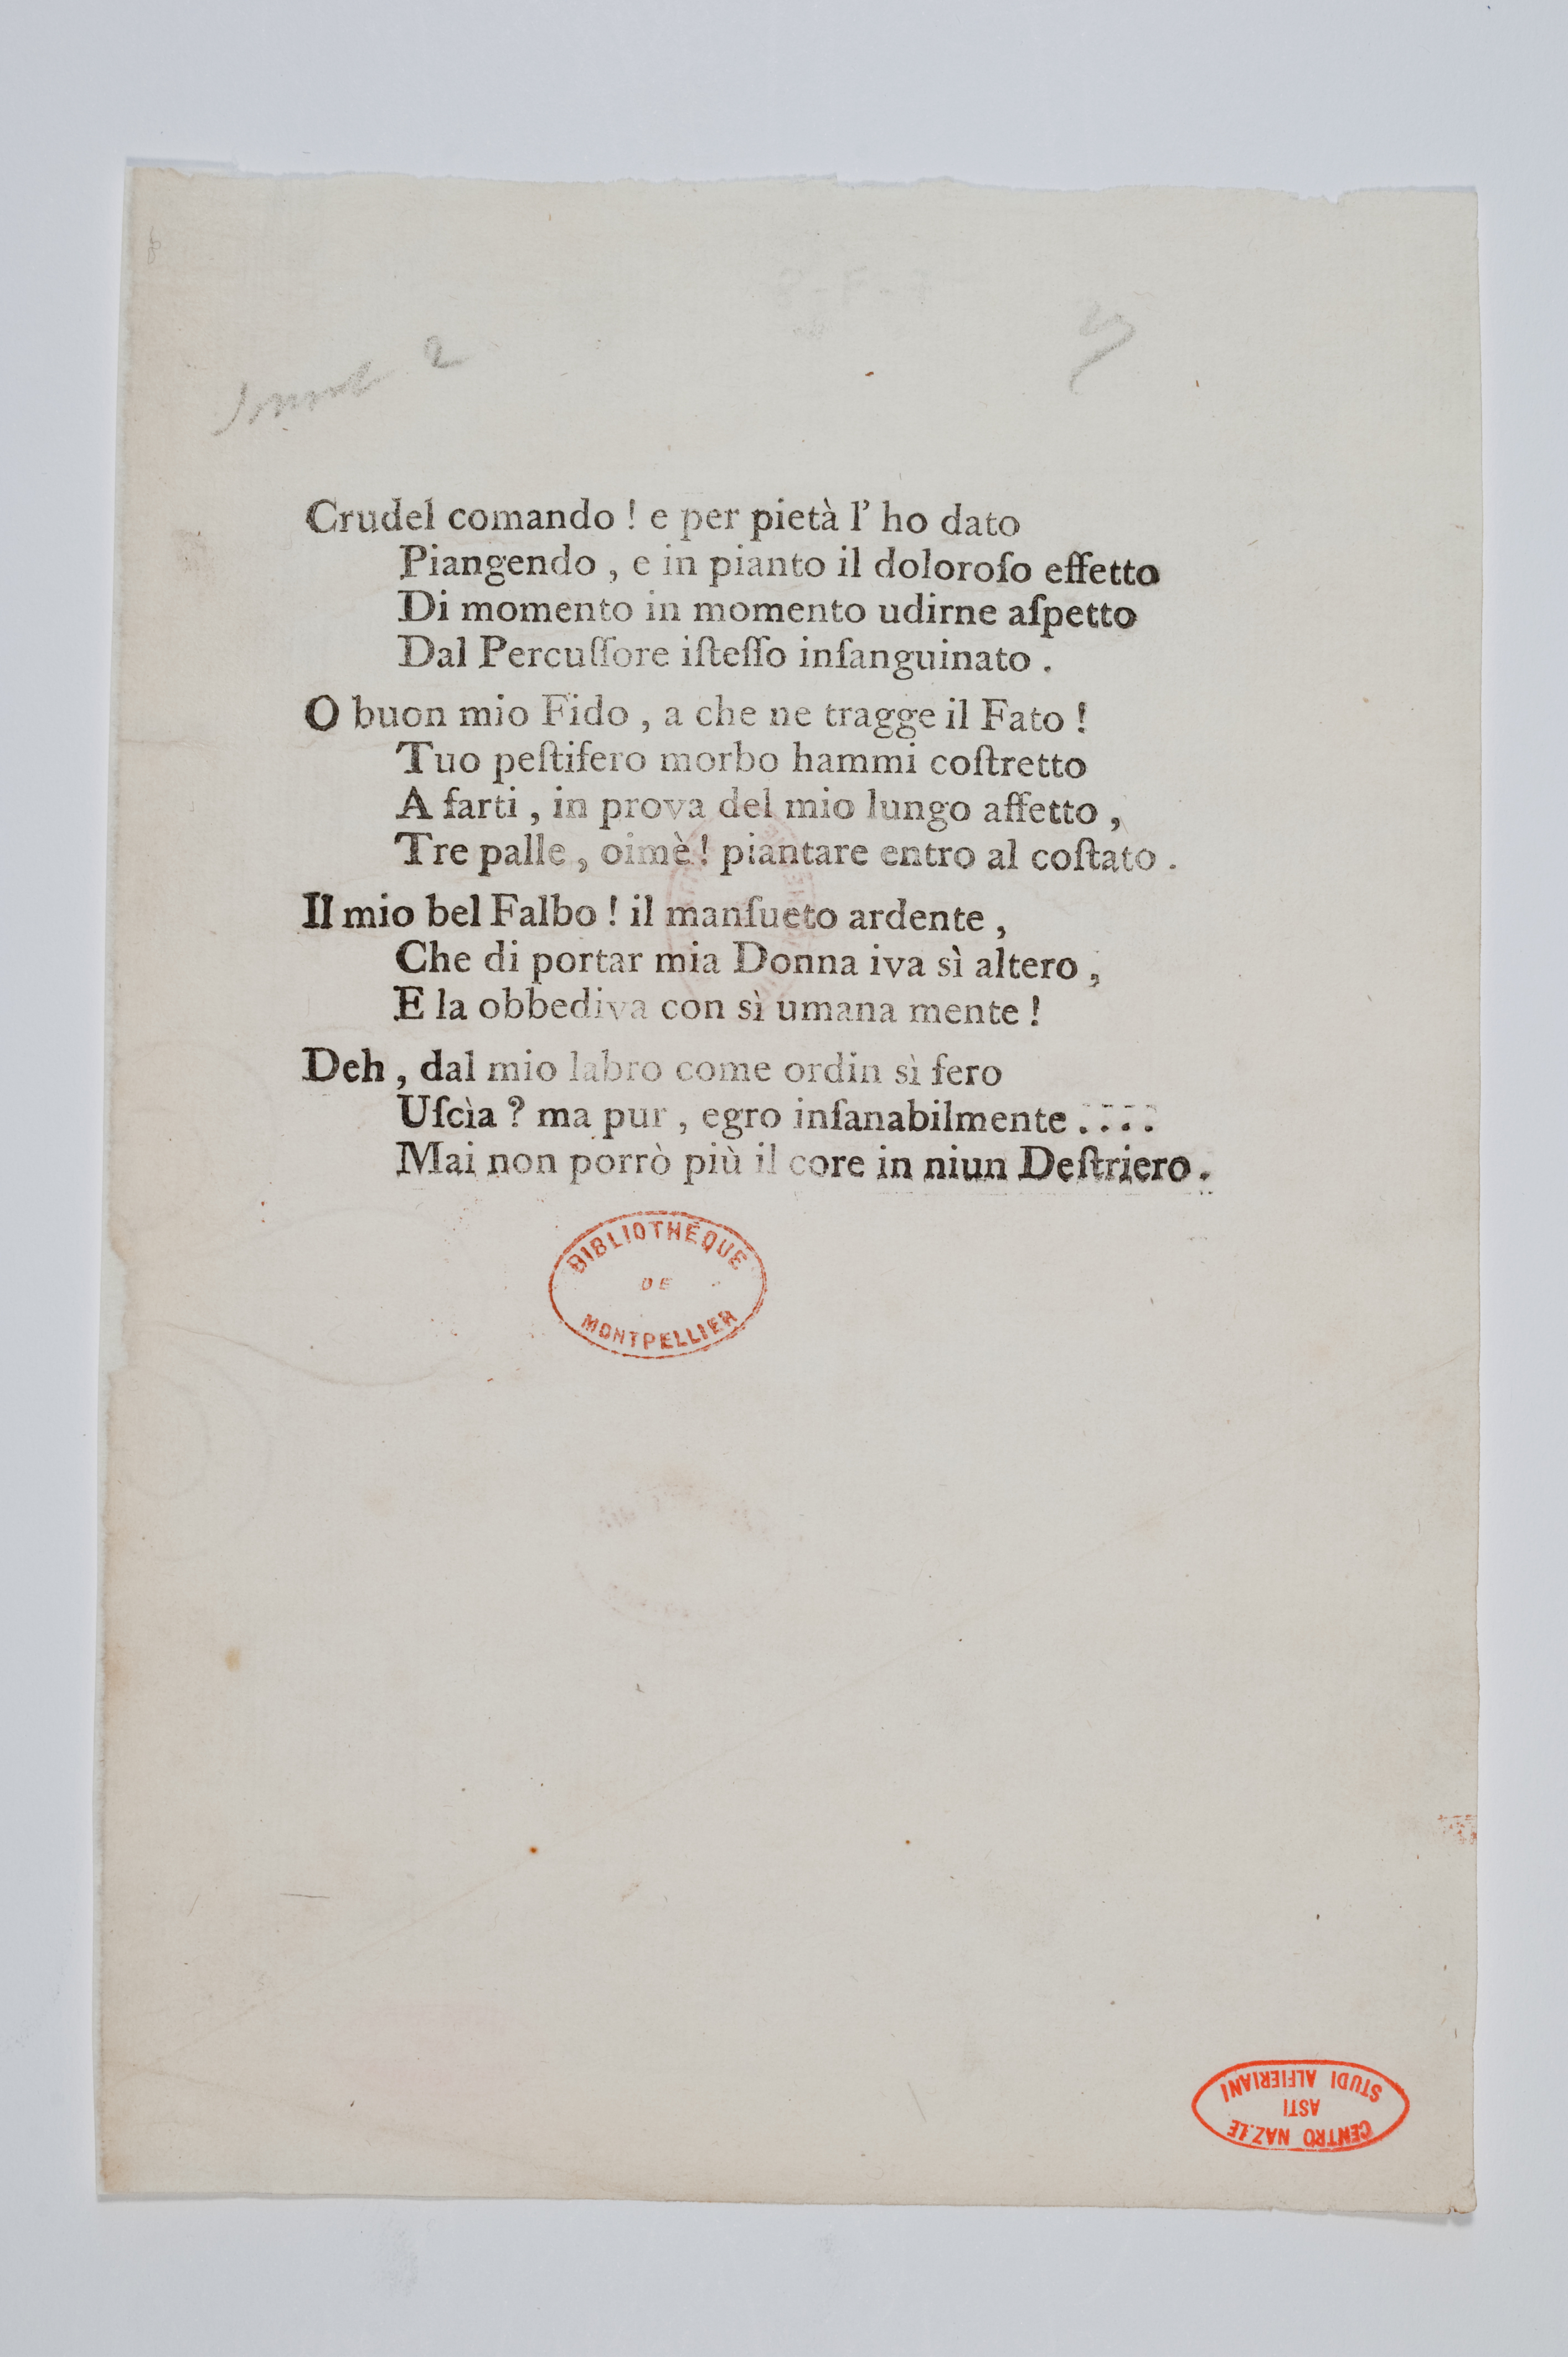 2
Crudel comando ! e per pietà l' ho dato
Piangendo , e in pianto il doloroſo effetto
Di momento in momento udirne aſpetto
Dal Percuſſore iſteſſo inſanguinato .
O buon mio Fido , a che ne tragge il Fato !
Tuo peſtifero morbo hammi coſtretto
A farti , in prova del mio lungo affetto ,
Tre palle , oimè ! piantare entro al coſtato .
Il mio bel Falbo ! il manſueto ardente ,
Che di portar mia Donna iva sì altero ,
E la obbediva con sì umana mente !
Deh , dal mio labro come ordin sì fero
Uſcìa ? ma pur , egro inſanabilmente . . . .
Mai non porrò più il core in niun Deſtriero .
BIBLIOTHÈQUE
DE
MONTPELLIER
CENTRO NAZ.LE
ASTI
STUDI ALFIERIANI